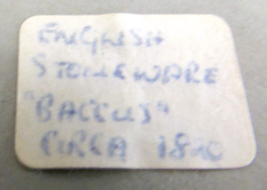 ENGLISH
STONEWARE
"BACCUS"
CIRCA